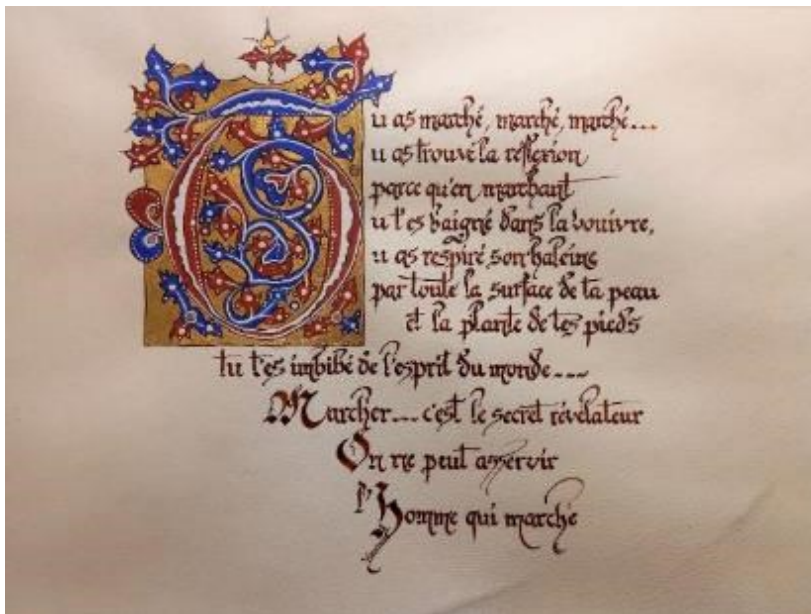 Tu as marché, marché, marché...
u as trouvé la réflexion
parce qu'en marchant
u t'es baigné dans la vouivre,
u as respiré son haleine
par toute la surface de ta peau
et la plante de tes pieds
tu t'es imbibé de l'esprit du monde...
Marcher... c'est le secret révélateur
On ne peut asservir
l'Homme qui marche